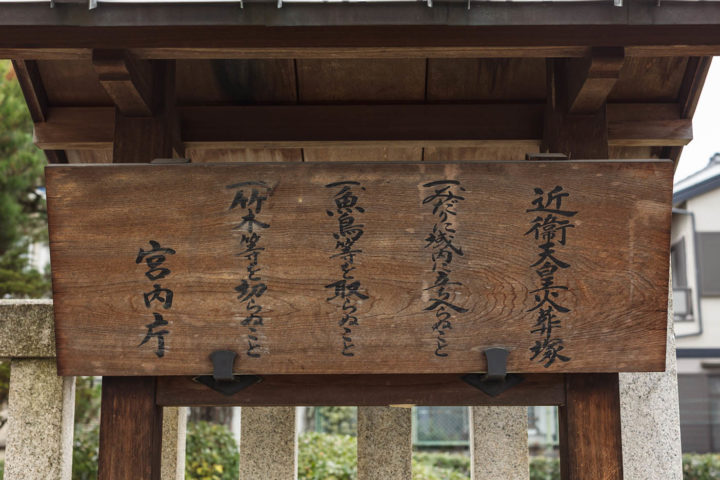 近衛天皇火葬塚
一みだりに域内に立入らぬこと
一魚鳥等を取らぬこと
一竹木等を切らぬこと
宮内庁